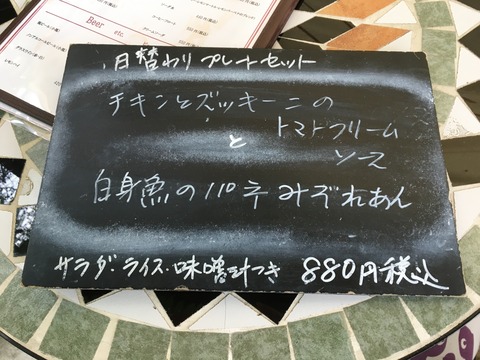 Beer
etc.
月替わりプレートセット
チキンとズッキーニの
トマトクリーム
ソース
と
白身魚のパネみぞれあん
サラダ・ライス・味噌汁つき 880円税込